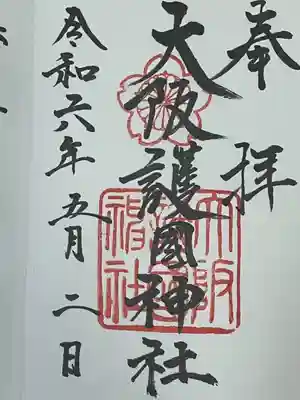 奉拝
大阪護國神社
令和六年五月二日